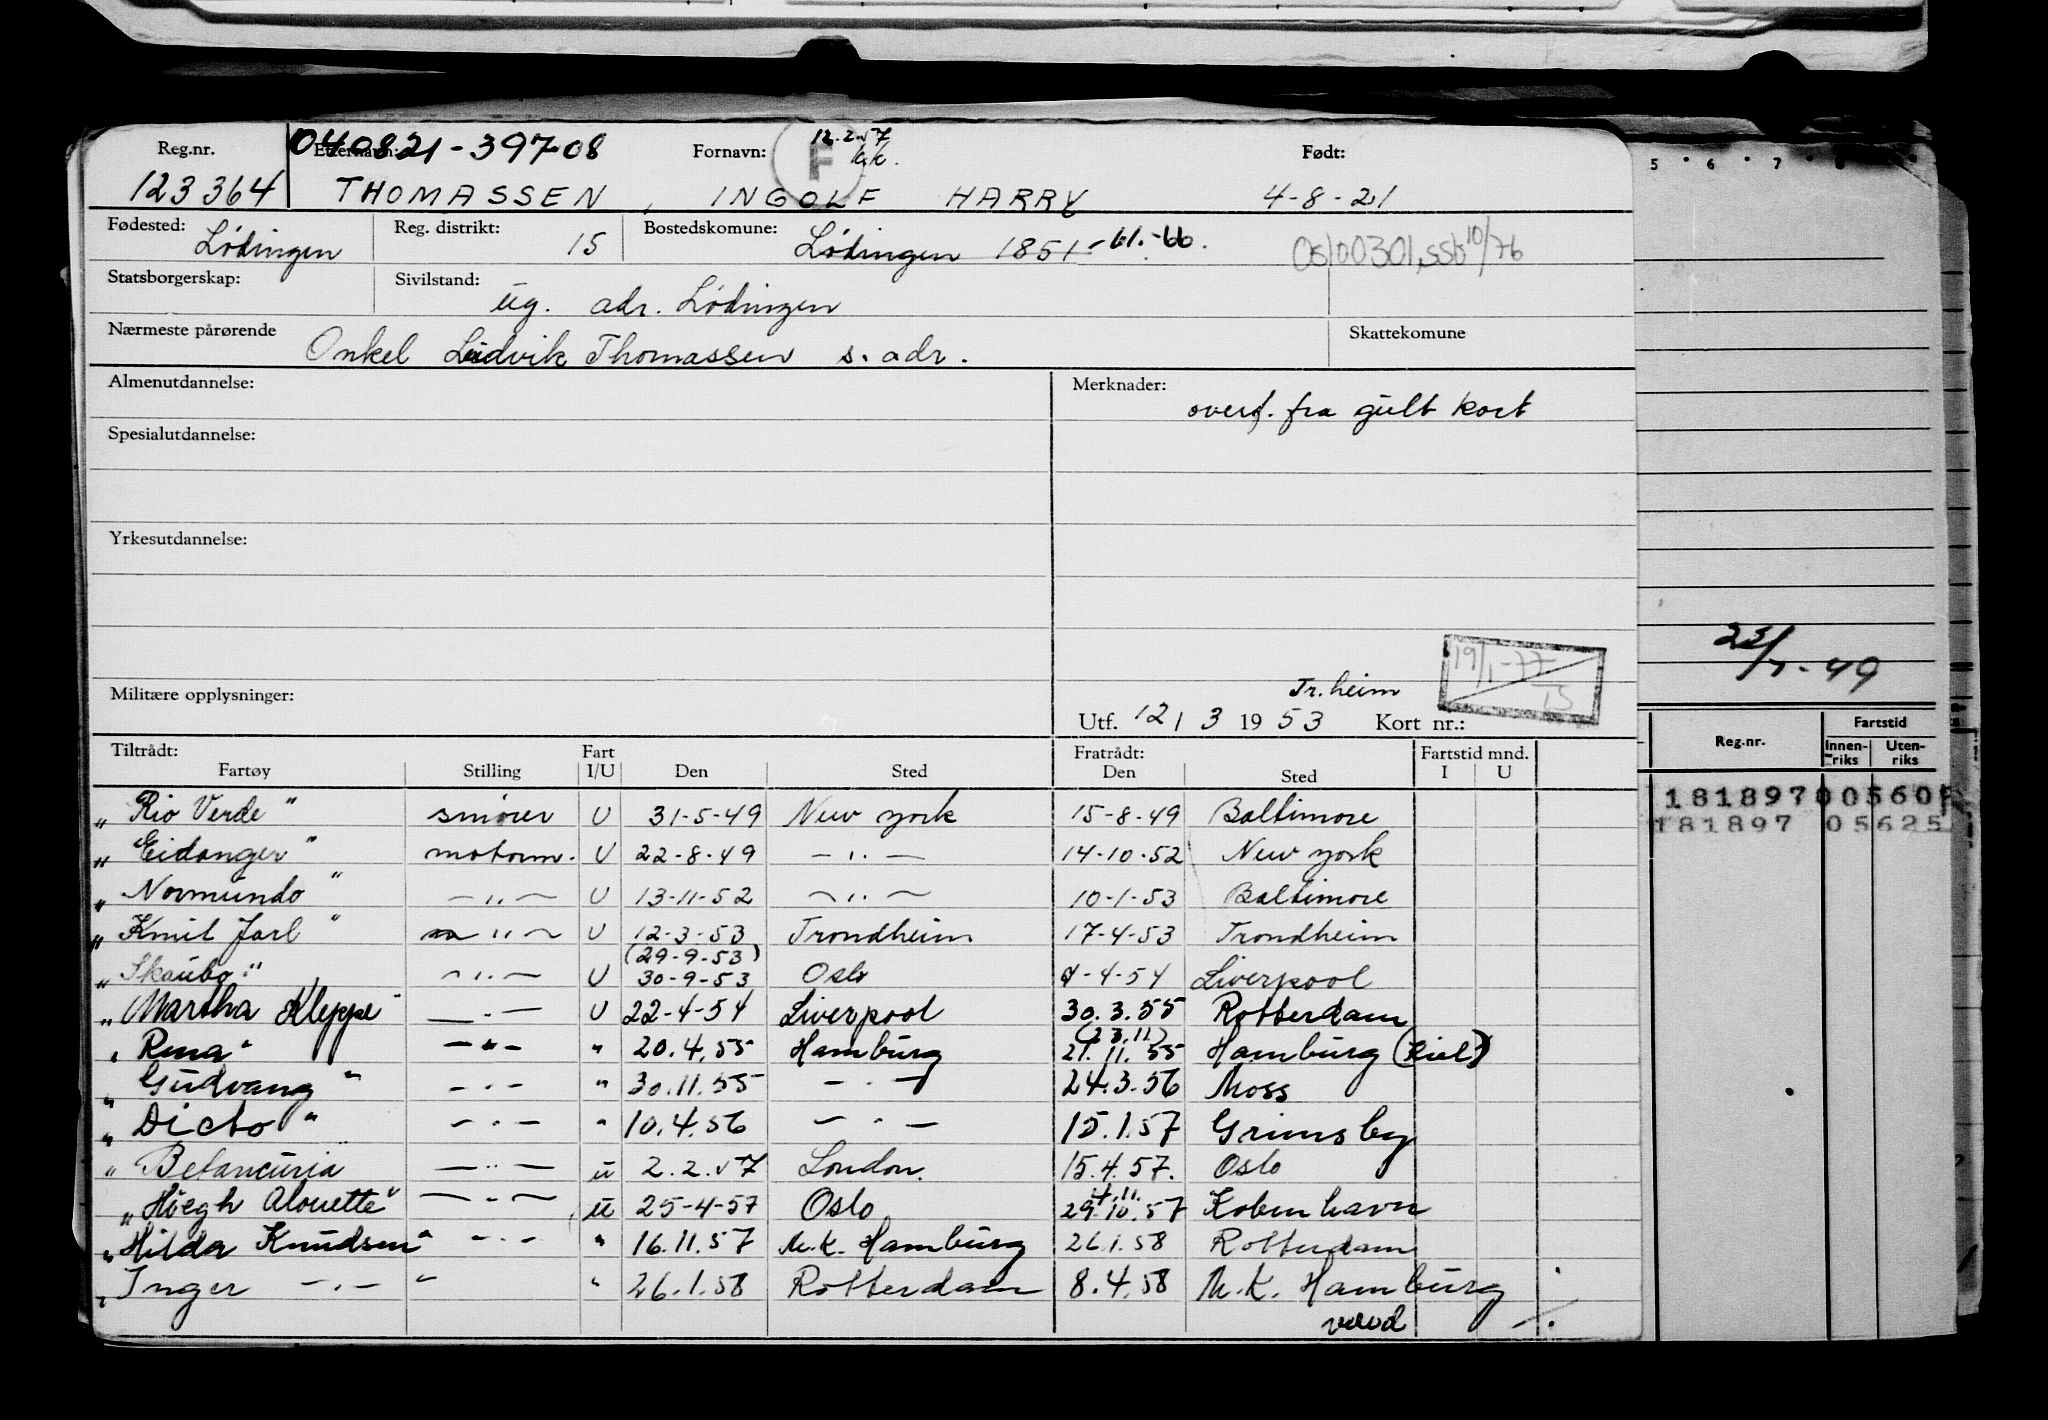 Reg.nr. 040821-39708 Etternavn: Fornavn: F 12.2.57 Født:
123364 THOMASSEN, INGOLF HARRY 4-8-21
Fødested: Lødingen Reg. distrikt: 15 Bostedskomune: Lødingen 1851 -61.-66. Oslo 0301, SSB 10/76
Statsborgerskap: Sivilstand: ug. adr. Lødingen
Nærmeste pårørende Onkel Ludvik Thomassen s. adr. Skattekomune
Almenutdannelse: Merknader:
overf. fra gult kort
Spesialutdannelse:
Yrkesutdannelse:
Tr.heim 19/1-77
Militære opplysninger: Utf. 12/3 1953 Kort nr.:
Tiltrådt: Fart Fratrådt: Fartstid mnd.
Fartøy Stilling I/U Den Sted Den Sted I U
„Rio Verde" smører U 31-5-49 New York 15-8-49 Baltimore
„Eidanger" motorm. U 22-8-49 — „ — 14-10-52 New York
„Normundo" — „ — U 13-11-52 — „ — 10-1-53 Baltimore
„Knut Jarl" — „ — U 12-3-53 Trondheim 17-4-53 Trondheim
(29-9-53)
„Skaubo" — „ — U 30-9-53 Oslo 4-4-54 Liverpool
„Martha Kleppe" — „ — U 22-4-54 Liverpool 30.3.55 Rotterdam
(23.11)
„Rena" — „ — " 20.4.55 Hamburg 21.11.55 Hamburg (Kiel)
„Gudvang" — „ — " 30.11.55 — „ — 24.3.56 Moss
„Dicto" — „ — " 10.4.56 — „ — 15.1.57 Grimsby
„Betancuria" — „ — u 2.2.57 London. 15.4.57. Oslo
4.11.
„Høegh Alouette" — „ — u 25-4-57 Oslo 29.10.57 Kobenhavn
„Hilda Knudsen" — „ — " 16.11.57 M.K. Hamburg 26.1.58 Rotterdam
„Inger — „ — " " 26.1.58 Rotterdam 8.4.58 M.K. Hamburg
vend ./.
5 • 6 • 7 • 8
23/7-49
Reg.nr. Fartstid
Innen-riks Uten-riks
181897 00560F
181897 05625